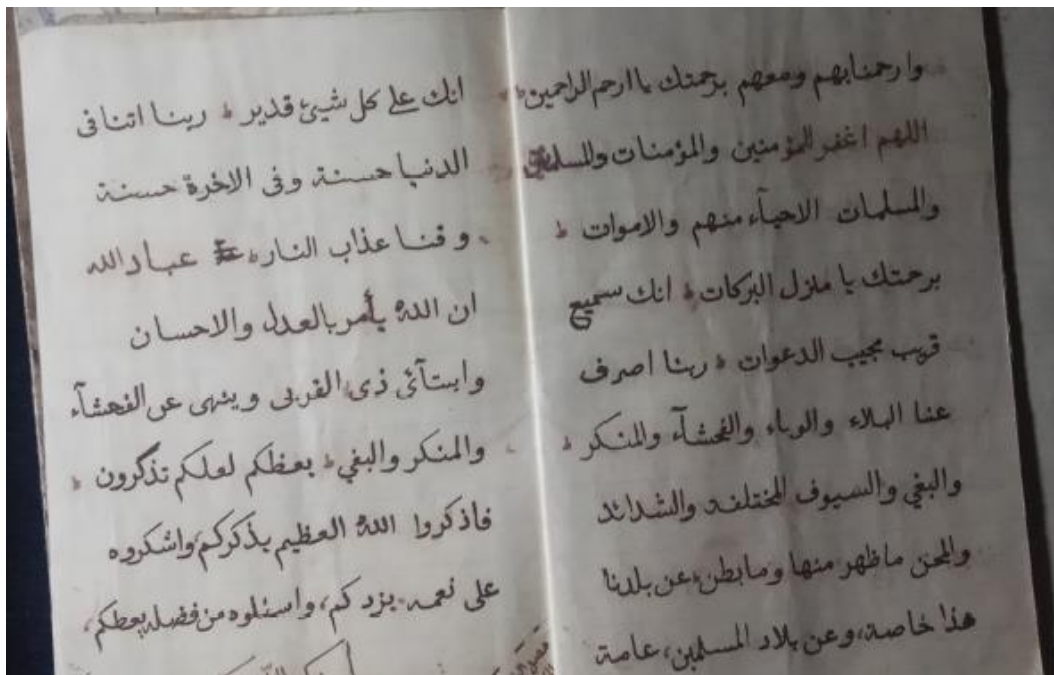 وارحمنا بهم ومعهم برحمتك يا ارحم الراحمين
اللهم اغفر للمؤمنين والمؤمنات والمسلمين
والمسلمات الاحيآء منهم والاموات
برحمتك يا منزل البركات انك سميع
قريب مجيب الدعوات ربنا اصرف
عنا البلاء والوباء والفحشآء والمنكر
والبغي والسيوف المختلفة والشدائد
والمحن ما ظهر منها وما بطن، عن بلدنا
هذا خاصة، وعن بلاد المسلمين، عامة
انك على كل شيئ قدير ربنا اتنا فى
الدنيا حسنة وفى الاخرة حسنة
وقنا عذاب النار عباد الله
ان الله يأمر بالعدل والاحسان
وايتآئ ذى القربى وينهى عن الفحشآء
والمنكر والبغي يعظكم لعلكم تذكرون
فاذكروا الله العظيم يذكركم، واشكروه
على نعمه يزدكم، واسئلوه من فضله يعطكم،